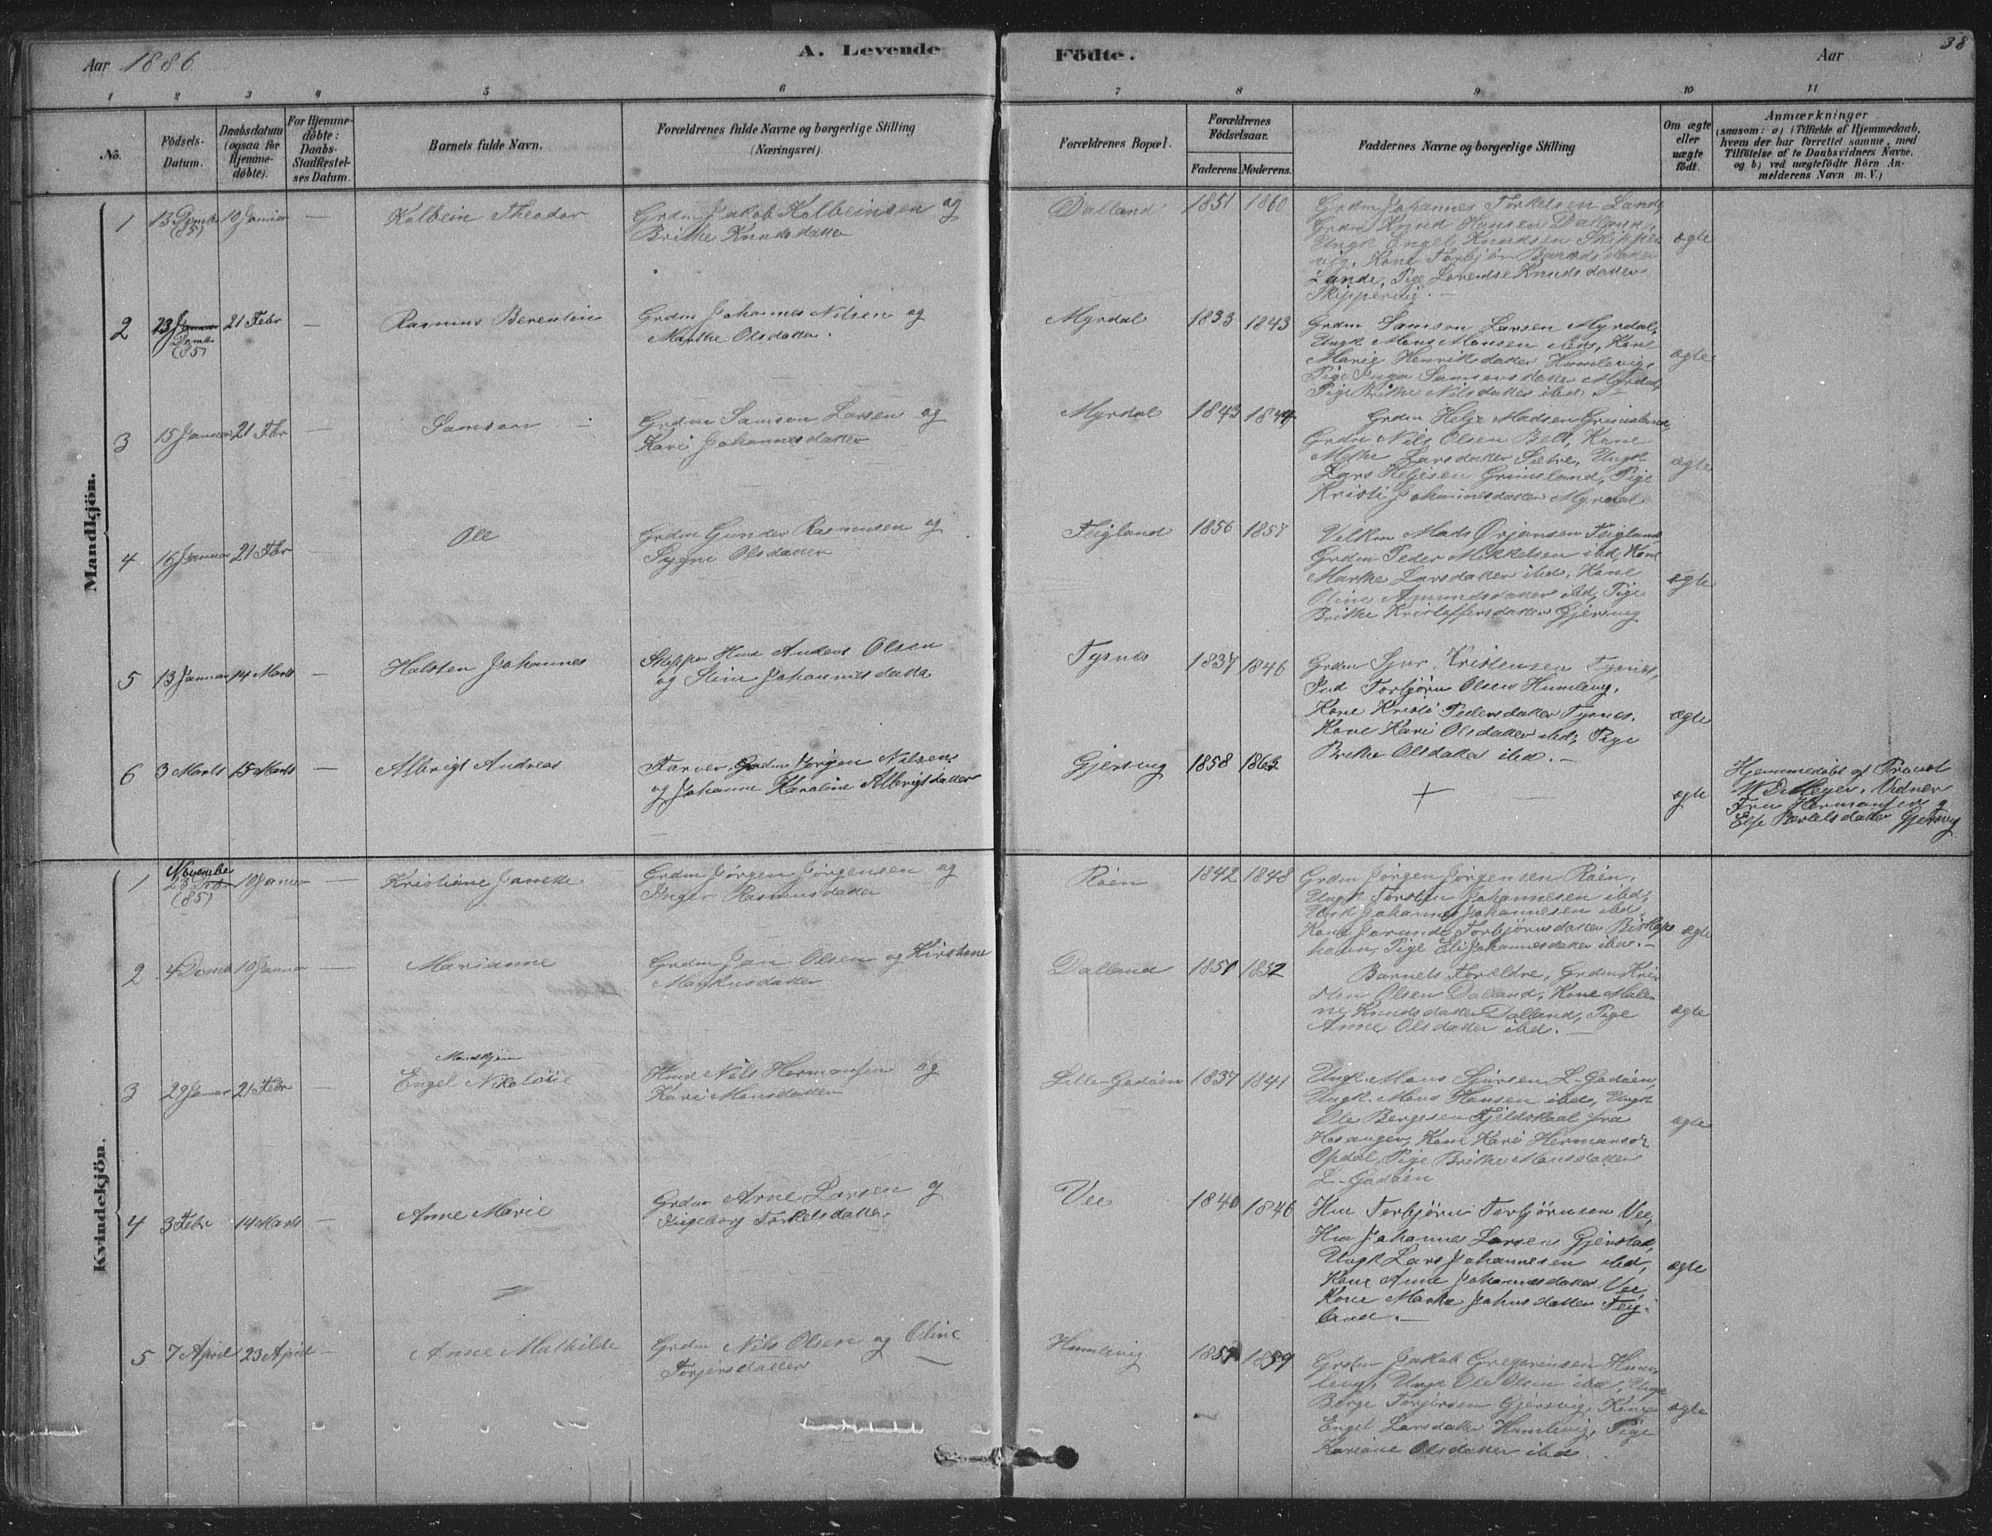 Aar 1886
A. Levende
Födte.
Aar
38
1 2 3 4 5 6 7 8 9 10 11
No.
Födsels-
Datum.
Daabsdatum
(ogsaa for
Hjemme-
döbte).
For Hjemme-
döbte:
Daabs-
Stadfæstel-
ses Datum.
Barnets fulde Navn.
Forældrenes fulde Navne og borgerlige Stilling
(Næringsvei).
Forældrenes Bopæl.
Forældrenes
Födselsaar.
Faderens. Moderens.
Faddernes Navne og borgerlige Stilling
Om ægte
eller
uægte
födt.
Anmærkninger
(saasom: a) i Tilfælde af Hjemmedaab,
hvem der har forrettet samme, med
Tilföielse af to Daabsvidners Navne,
og b) ved uægtefödte Börn An-
melderens Navn m. V.)
Mandkjön.
1 13 Decmb (85) 10 Januar — Kolbein Theodor
Grdm Jakob Kolbeinsen og
Brithe Knudsdatter
Dalland 1851 1860
Grdm Johannes Torkelsen Lande,
Grdm Knud Hansen Dalland,
Ungk Engel Knudsen Skipper-
vig, Kone Torbjør Baardsdatter
Lande, Pige Lorentse Knudsdatter
Skippervig. —
ægte
2 13 Januar Decmb (85) 21 Febr — Rasmus Berentin
Grdm Johannes Nilsen og
Marthe Olsdatter.
Myrdal 1833 1843
Grdm Samson Larsen Myrdal,
Ungk Mons Monsen Kone
Marie Henriksdatter Humlevig,
Pige Inga Samsonsdatter Myrdal,
Pige Brithe Nilsdatter ibd. —
ægte
3 15 Januar 21 Febr — Samson
Grdm Samson Larsen og
Kari Johannesdatter
Myrdal 1843 1844
Grdm Helje Madsen Grimsland,
Grdm Nils Olsen Kone
Methe Larsdatter Sætre, Ungk
Lars Heljesen Grimsland, Pige
Kristi Johannesdatter Myrdal
ægte
4 16 Januar 21 Febr — Ole
Grdm Gunder Rasmusen og
Sygni Olsdatter
Teigland 1856 1857
Mads Ørjansen Teigland
Grdm Peder Mikkelsen ibd, Kone
Marthe Larsdatter ibd, Kone
Oline Amundsdatter ibd, Pige
Brithe Kristoffersdatter Gjersvig
ægte
5 13 Januar 14 Marts — Halsten Johannes
Skipper Hmd Anders Olsen
og Stine Johannesdatter
Tysnes 1837 1846
Grdm Sjur Kristensen Tysnes,
Ind Torbjørn Olsen Humlevig,
Kone Kristi Pedersdatter Tysnes.
Kone Kari Olsdatter ibd, Pige
Brithe Olsdatter ibd. —
ægte
6 3 Marts 15 Marts — Albrigt Andreas
Farver, Grdm Jørgen Nilsen
og Johanne Karoline Albrigtsdatter
Gjersvig 1858 1863
+ —
ægte
Hjemmedøbt af Provst
W D Meyer, Vidner
Fru Hermansen og
Else Bertelsdatter Gjersvig
Kvindekjön.
1 November (85) 10 Januar — Kristiane Janeke
Grdm Jørgen Jørgensen og
Inger Rasmusdatter
Røen 1842 1848
Grdm Jørgen Jørgensen Røen,
Ungk Torsten Johannesen ibd,
Ungk Johannes Johannesen ibd.
Kone Torbjørnsdatter Biskops
havn, Pige Eli Johannesdatter ibd. —
ægte
2 4 Decmb 10 Januar — Marianne
Grdm Jan Olsen og Kirstine
Markusdatter
Dalland 1851 1852
Barnets Forældre, Grdm Kri-
sten Olsen Dalland, Kone Male-
ne Knudsdatter Dalland, Pige
Anne Olsdatter ibd. —
ægte
3 29 Januar 21 Febr — Mandkjøn
Engel Nikolaie
Hmd Nils Hermansen og
Kari Monsdatter
Lille-Godøen 1837 1841
Ungk Mons Sjursen L-Godøen,
Ungk. Mons Hansen ibd, Ungk
Ole Bergesen Fjeldskaal fra
Hosanger, Kone Kari Hermansdr
Opdal, Pige Brithe Monsdatter
L-Godøen
ægte
4 3 Febr 14 Marts — Anne Marie
Grdm Arne Larsen og
Ingeborg Torkelsdatter
Vee 1840 1846
Hm Torbjørn Torbjørnsen Vee,
Hm Johannes Larsen Gjerstad,
Ungk Lars Johannesen ibd,
Kone Anne Johannesdatter Vee,
Kone Marthe Johnsdatter Teig-
land. —
ægte
5 7 April 23 April — Anne Mathilde
Grdm Nils Olsen og Oline
Torjersdatter
Humlevig 1859
Grdm Jakob Gregoriusen Hum-
levig, Ungk Ole Olsen ibd, Ungk
Børge Torjersen Gjersvig, Kone
Engel Larsdatter Humlevig, Pige
Kariane Olsdatter ibd.
ægte